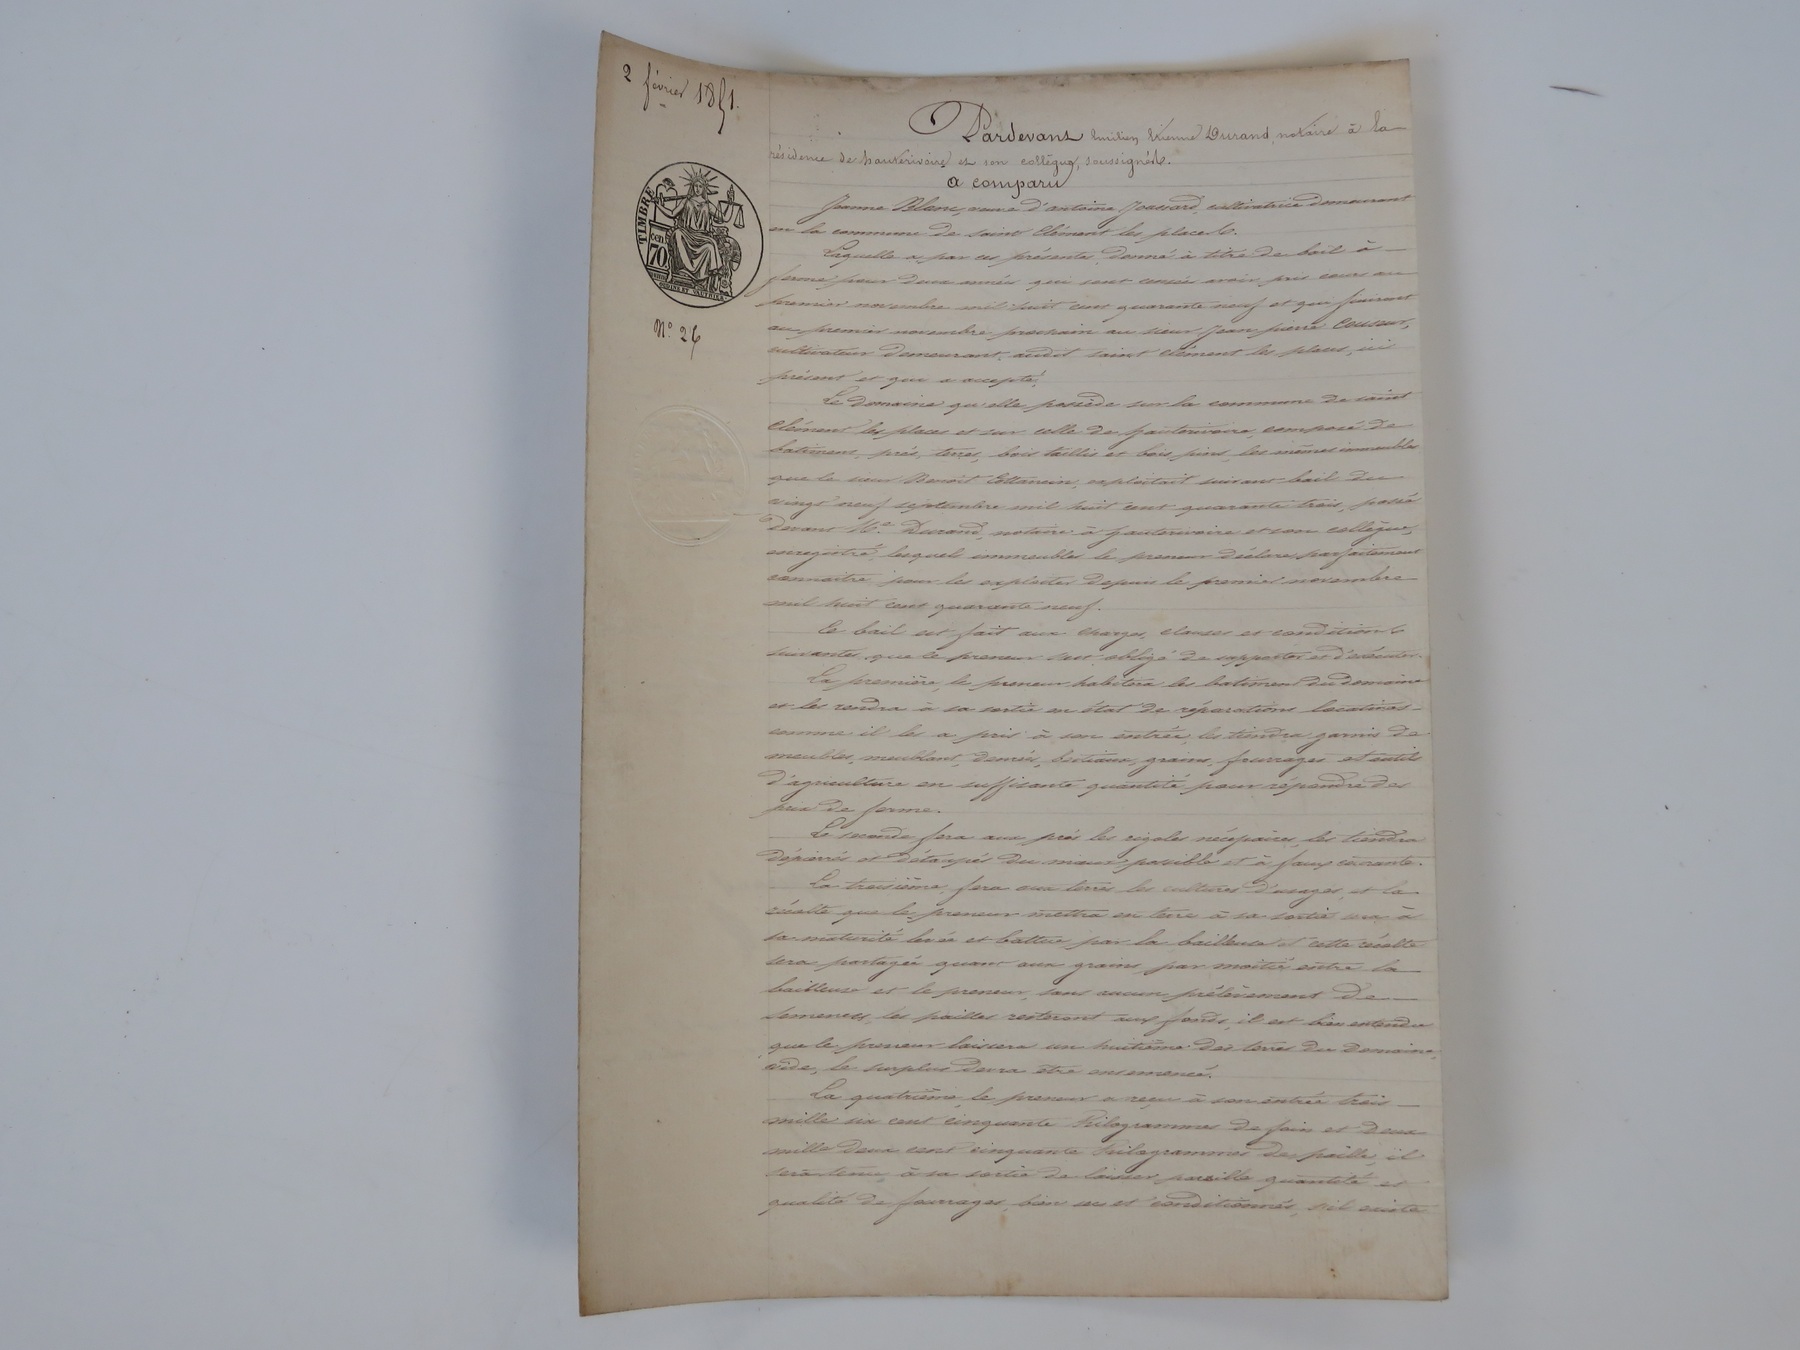 2 février 1851.
Pardevant Emilien Etienne Durand, notaire à la
résidence de hauterivoire et son collègue, soussignés.
a comparu
TIMBRE
cen
70
N° 26
Jeanne Blanc, veuve d'antoine Joassard, cultivatrice demeurant
en la commune de saint Clément les places.
Laquelle a par ces présentes, donné à titre de bail à
ferme pour deux années qui sont censées avoir pris cours au
premier novembre mil huit cent quarante neuf et qui finiront
au premier novembre prochain au sieur Jean pierre
cultivateur demeurant audit saint Clément les places, ici
présent et qui a accepté,
Le domaine qu'elle possède sur la commune de saint
Clément les places et sur celle de hauterivoire, composé de
batiment, prés, terres, bois taillis et bois pins, les mêmes immeubles
que le sieur Benoit exploitait suivant bail du
vingt neuf septembre mil huit cent quarante trois, passé
devant Me. Durand, notaire à hauterivoire et son collègue,
enregistré, lesquels immeubles le preneur déclare parfaitement
connaitre pour les exploiter depuis le premier novembre
mil huit cent quarante neuf.
Ce bail est fait aux charges, clauses et conditions
suivantes que le preneur sera obligé de supporter et d'exécuter.
La première, le preneur habitera les batiment du domaine
et les rendra à sa sortie en état de réparations locatives
comme il les a pris à son entrée, les tiendra garnis de
meubles, meublant, denrées, bestiaux, grains, fourrages et outils
d'agriculture en suffisante quantité pour répondre des
prix de ferme.
La seconde fera aux prés les rigoles nécessaires, les tiendra
dépierrés et détaupés du mieux possible et à faux courante.
La troisième, fera aux terres les cultures d'usages, et la
récolte que le preneur mettra en terre à sa sortie sera à
sa maturité levée et battue par la bailleuse et cette récolte
sera partagée quant aux grains, par moitié entre la
bailleuse et le preneur, sans aucun prélèvement de
semences, les pailles resteront aux fonds, il est bien entendu
que le preneur laissera un huitième des terres du domaine,
vide, le surplus devra être ensemencé.
La quatrième, le preneur a reçu à son entrée trois
mille six cent cinquante Kilogrammes de foin et deux
mille deux cent cinquante Kilogrammes de paille, il
sera tenu, à sa sortie de laisser pareille quantité et
qualité de fourrages, bien sec et conditionnés, s'il existe